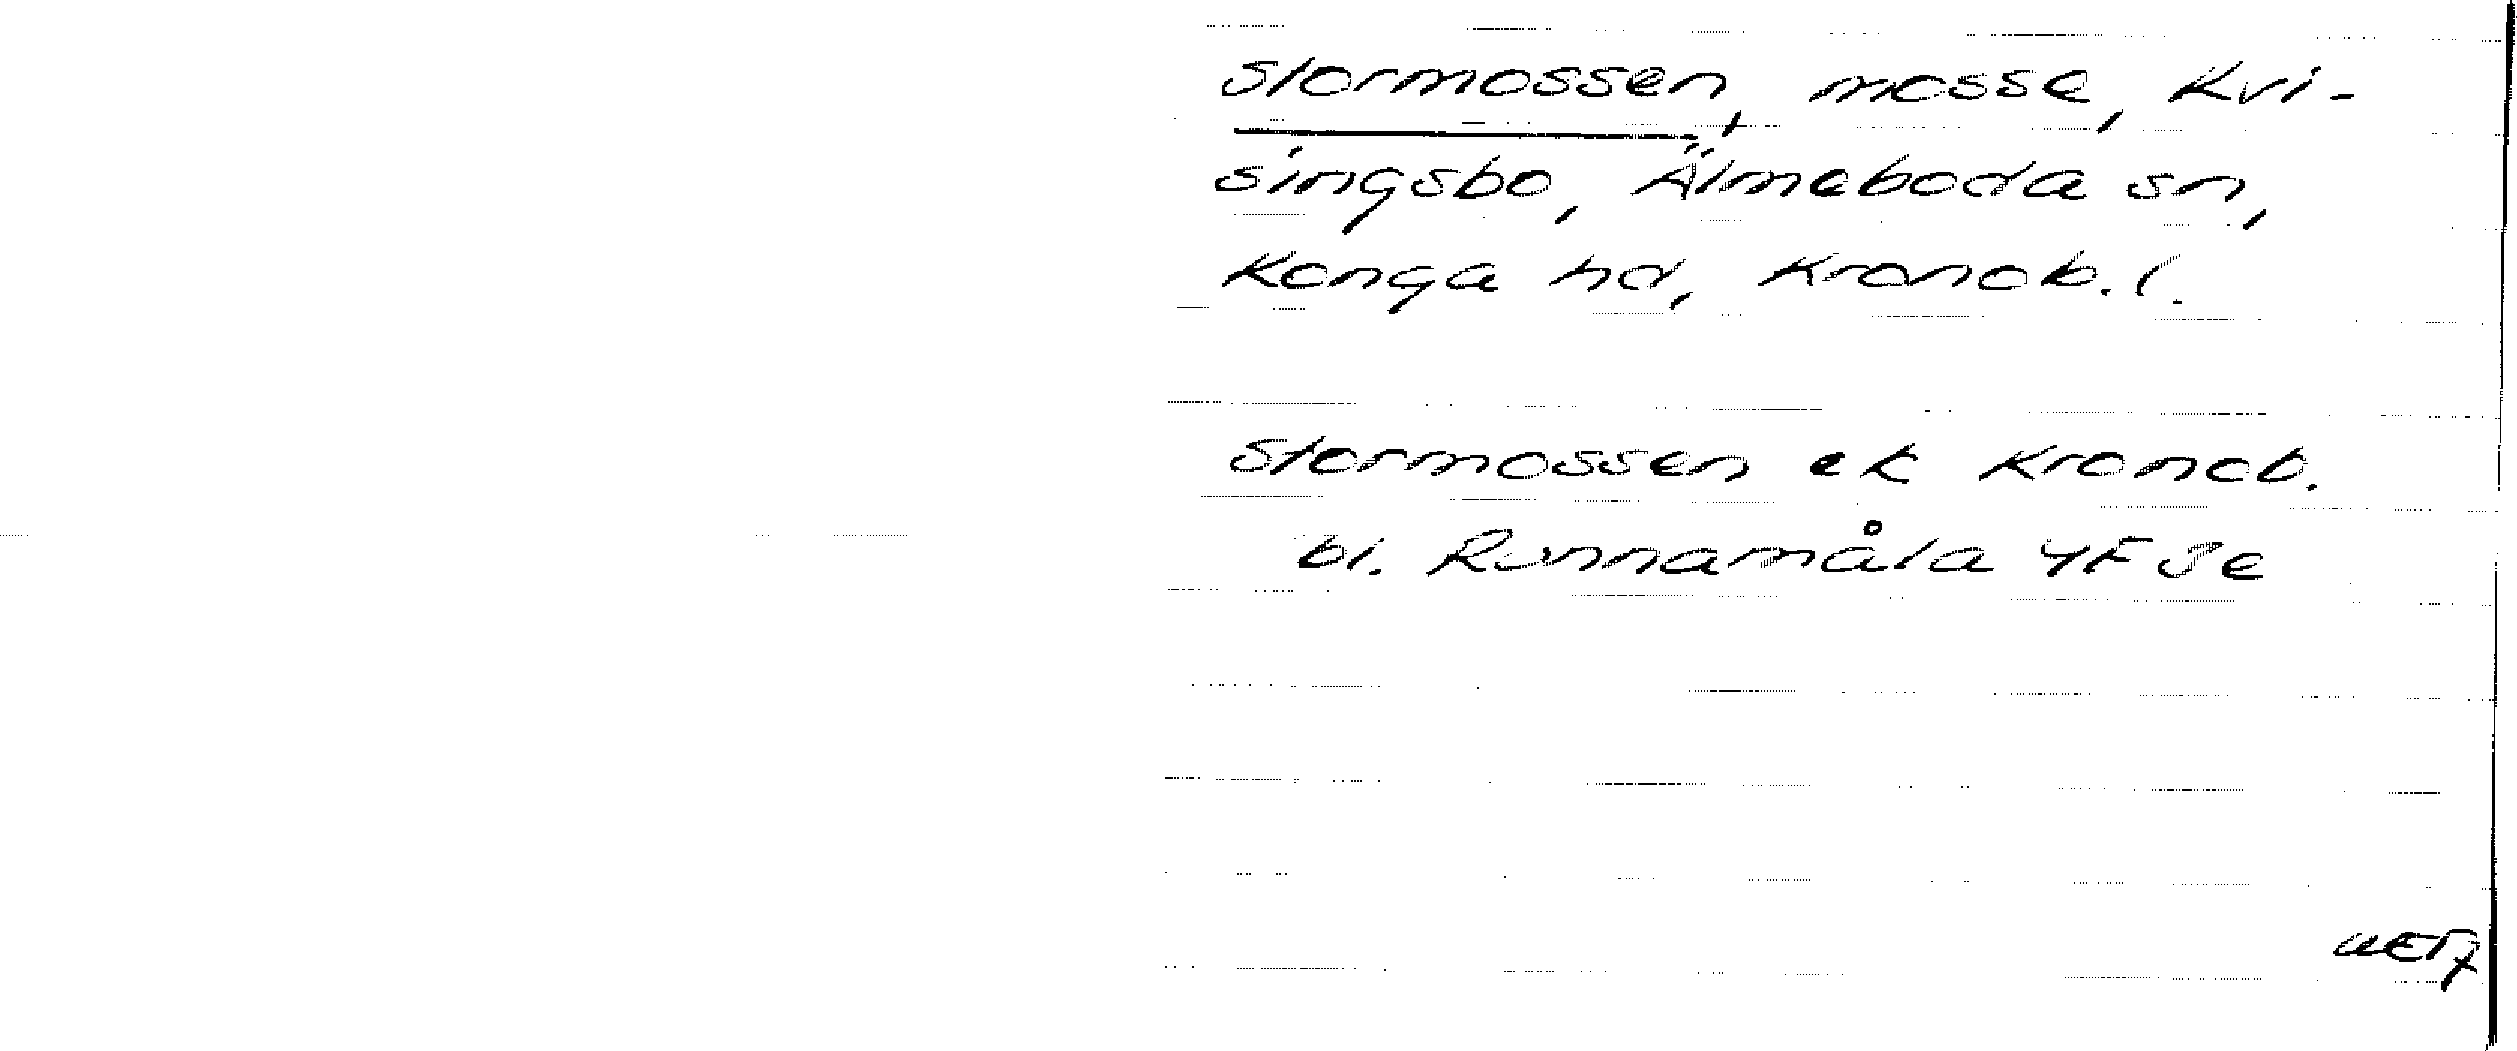 Stormossen, mosse, Kvi-
singsbo, Älmeboda sn,
Konga hd, Kronob. l.
Stormossen ek Kronob.
bl. Runnamåla 4F 3e